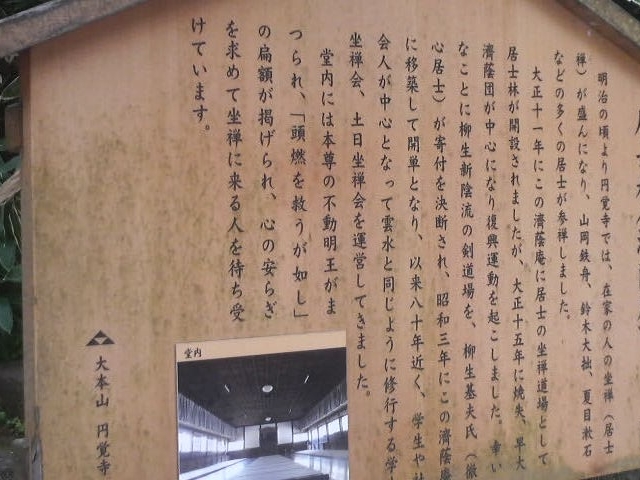 明治の頃より円覚寺では、在家の人の坐禅（居士
禅）が盛んになり、山岡鉄舟、鈴木大拙、夏目漱石
などの多くの居士が参禅しました。
大正十一年にこの濟蔭庵に居士の坐禅道場として
居士林が開設されましたが、大正十五年に焼失、早大
濟蔭団が中心になり復興運動を起こしました。幸い
なことに柳生新陰流の剣道場を、柳生基夫氏（徹
心居士）が寄付を決断され、昭和三年にこの濟蔭庵
に移築して開単となり、以来八十年近く、学生や社
会人が中心となって雲水と同じように修行する学
坐禅会、土日坐禅会を運営してきました。
堂内には本尊の不動明王がま
つられ、「頭燃を救うが如し」
の扁額が掲げられ、心の安らぎ
を求めて坐禅に来る人を待ち受
けています。
堂内
大本山 円覚寺